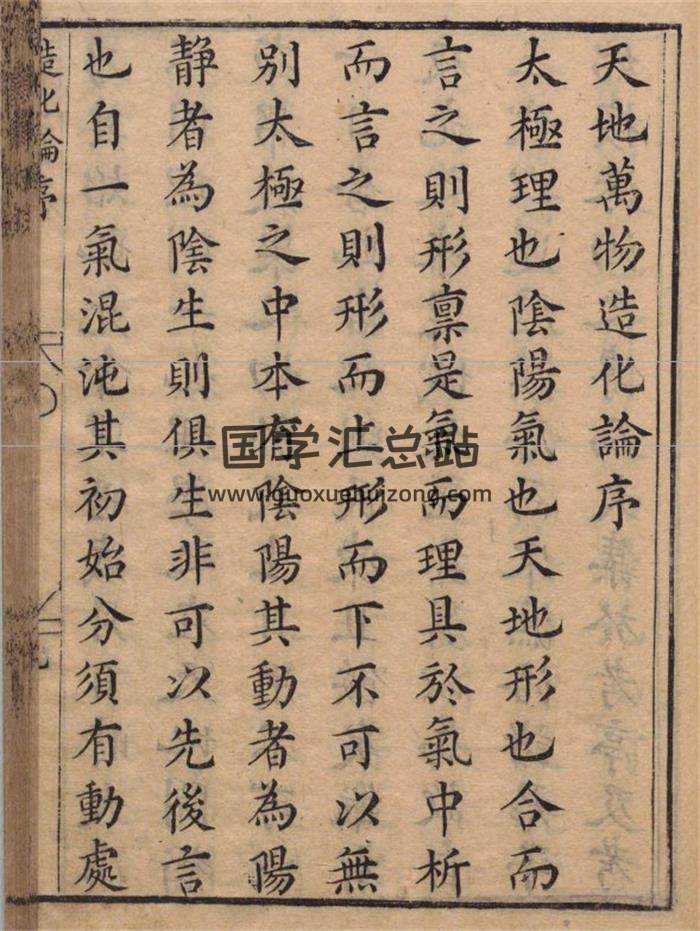 天地萬物造化論序
太極理也陰陽氣也天地形也合而
言之則形禀是氣而理具於氣中析
而言之則形而上形而下不可以無
別太極之中本有陰陽其動者為陽
静者為陰生則俱生非可以先後言
也自一氣混沌其初始分須有動處
造化論序
国学汇总站
www.guoxuehuizong.com